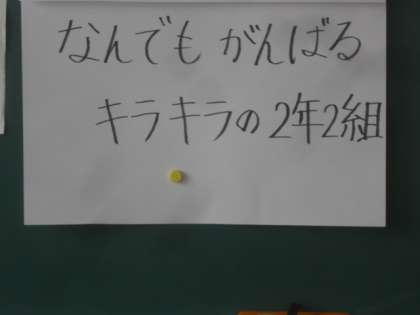 なんでも がんばる
キラキラの 2年2組